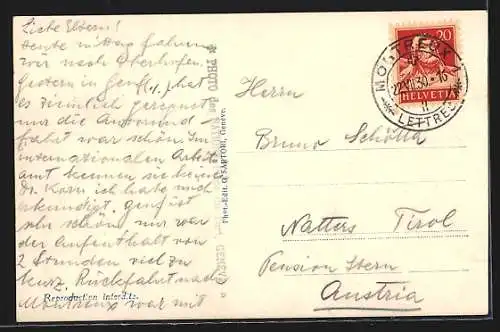 Liebe Eltern!
Heute mittag fahren
wir nach Oberhofen.
Gestern in Genf (!) hat
es ziemlich geregnet
nur die Autorund
fahrt war schön. Im
internationalen Arbeits
amt kennen sie keinen
Dr. Korn ich habe mich
erkundigt, genf ist
sehr schön nur war
der Aufenthalt von
2 Stunden viel zu
kurz. Rückfahrt nach
Montreux war mit
Reproduction interdite.
PHOTO des
GENÈVE
Phot.-Edit. O. SARTORI, Genève.
20
HELVETIA
MONTREUX
22.VII.30.-16
LETTRES
Herrn
Bruno Schötta
Natters Tirol
Pension Stern
Austria